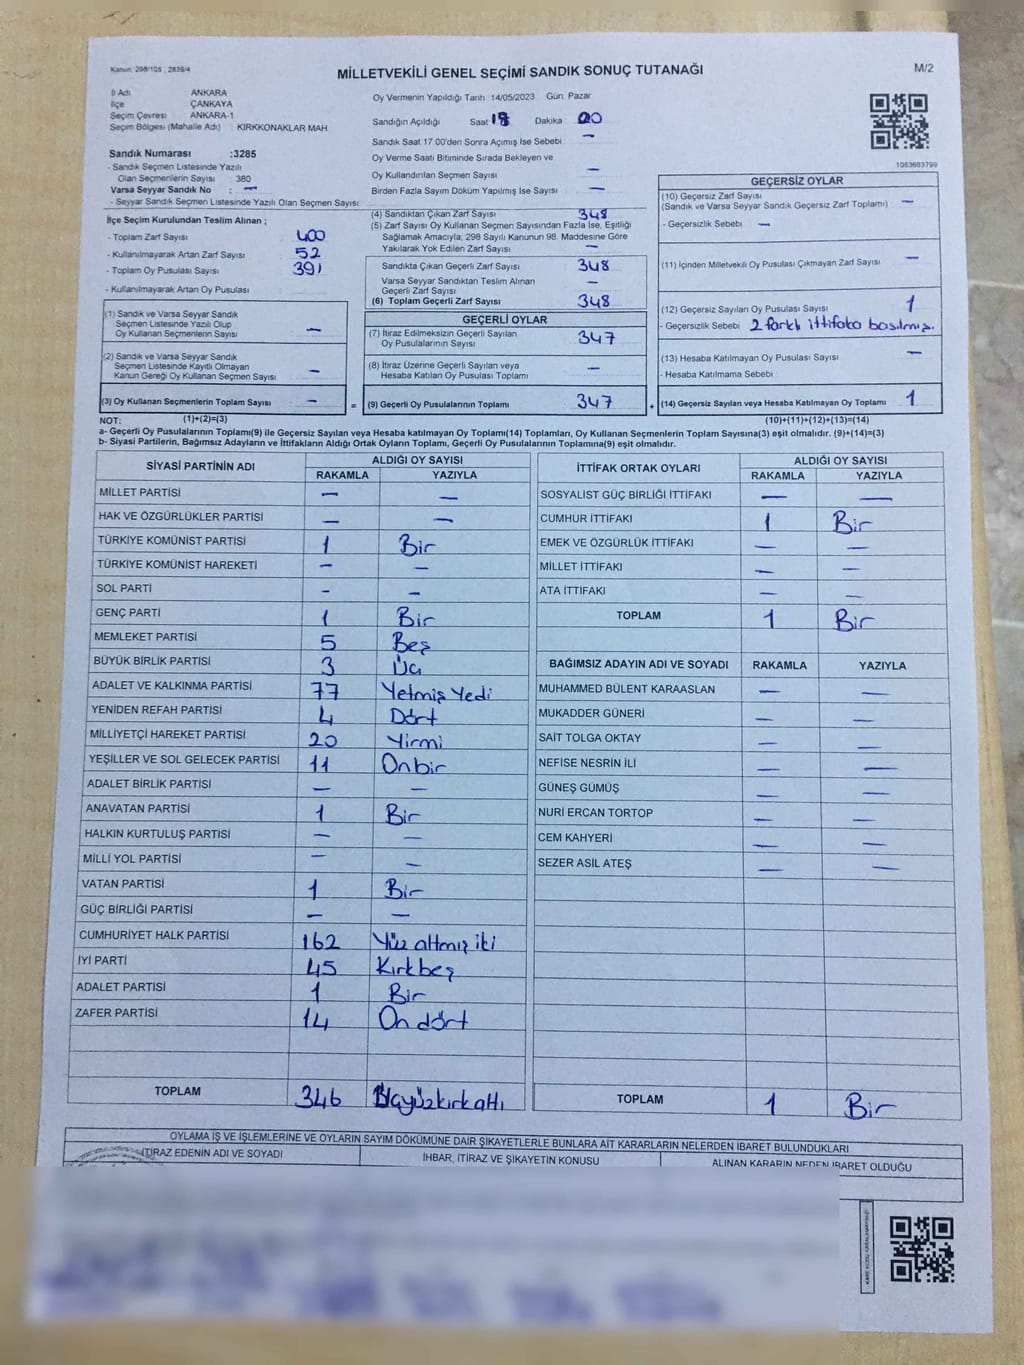 Kanun: 298/105 , 2839/4
MİLLETVEKİLİ GENEL SEÇİMİ SANDIK SONUÇ TUTANAĞI
M/2
İl Adı ANKARA
İlçe ÇANKAYA
Seçim Çevresi ANKARA-1
Seçim Bölgesi (Mahalle Adı) KIRKKONAKLAR MAH
Oy Vermenin Yapıldığı Tarih :14/05/2023 Gün: Pazar
Sandığın Açıldığı Saat 18 Dakika 00
Sandık Saat 17:00'den Sonra Açımış İse Sebebi : —
Oy Verme Saati Bitiminde Sırada Bekleyen ve
Oy Kullandırılan Seçmen Sayısı —
Birden Fazla Sayım Döküm Yapılmış İse Sayısı —
1083683799
Sandık Numarası :3285
- Sandık Seçmen Listesinde Yazılı
Olan Seçmenlerin Sayısı 380
Varsa Seyyar Sandık No : —
- Seyyar Sandık Seçmen Listesinde Yazılı Olan Seçmen Sayısı
İlçe Seçim Kurulundan Teslim Alınan ;
- Toplam Zarf Sayısı 400
- Kullanılmayarak Artan Zarf Sayısı 52
- Toplam Oy Pusulası Sayısı 391
- Kullanılmayarak Artan Oy Pusulası
(1) Sandık ve Varsa Seyyar Sandık
Seçmen Listesinde Yazılı Olup
Oy Kullanan Seçmenlerin Sayısı —
(2) Sandık ve Varsa Seyyar Sandık
Seçmen Listesinde Kayıtlı Olmayan
Kanun Gereği Oy Kullanan Seçmen Sayısı —
(3) Oy Kullanan Seçmenlerin Toplam Sayısı —
(4) Sandıktan Çıkan Zarf Sayısı 348
(5) Zarf Sayısı Oy Kullanan Seçmen Sayısından Fazla İse, Eşitliği
Sağlamak Amacıyla, 298 Sayılı Kanunun 98. Maddesine Göre
Yakılarak Yok Edilen Zarf Sayısı —
Sandıkta Çıkan Geçerli Zarf Sayısı 348
Varsa Seyyar Sandıktan Teslim Alınan
Geçerli Zarf Sayısı —
(6) Toplam Geçerli Zarf Sayısı 348
GEÇERLİ OYLAR
(7) İtiraz Edilmeksizin Geçerli Sayılan
Oy Pusulalarının Sayısı 347
(8) İtiraz Üzerine Geçerli Sayılan veya
Hesaba Katılan Oy Pusulası Toplamı —
= (9) Geçerli Oy Pusulalarının Toplamı 347
GEÇERSİZ OYLAR
(10) Geçersiz Zarf Sayısı
(Sandık ve Varsa Seyyar Sandık Geçersiz Zarf Toplamı) —
- Geçersizlik Sebebi : —
(11) İçinden Milletvekili Oy Pusulası Çıkmayan Zarf Sayısı —
(12) Geçersiz Sayılan Oy Pusulası Sayısı 1
- Geçersizlik Sebebi 2 farklı ittifaka basılmış.
(13) Hesaba Katılmayan Oy Pusulası Sayısı —
- Hesaba Katılmama Sebebi
+ (14) Geçersiz Sayılan veya Hesaba Katılmayan Oy Toplamı 1
NOT: (1)+(2)=(3) (10)+(11)+(12)+(13)=(14)
a- Geçerli Oy Pusulalarının Toplamı(9) ile Geçersiz Sayılan veya Hesaba katılmayan Oy Toplamı(14) Toplamları, Oy Kullanan Seçmenlerin Toplam Sayısına(3) eşit olmalıdır. (9)+(14)=(3)
b- Siyasi Partilerin, Bağımsız Adayların ve İttifakların Aldığı Ortak Oyların Toplamı, Geçerli Oy Pusulalarının Toplamına(9) eşit olmalıdır.
SİYASİ PARTİNİN ADI ALDIĞI OY SAYISI
RAKAMLA YAZIYLA
MİLLET PARTİSİ — —
HAK VE ÖZGÜRLÜKLER PARTİSİ — —
TÜRKİYE KOMÜNİST PARTİSİ 1 Bir
TÜRKİYE KOMÜNİST HAREKETİ — —
SOL PARTİ — —
GENÇ PARTİ 1 Bir
MEMLEKET PARTİSİ 5 Beş
BÜYÜK BİRLİK PARTİSİ 3 Üç
ADALET VE KALKINMA PARTİSİ 77 Yetmiş Yedi
YENİDEN REFAH PARTİSİ 4 Dört
MİLLİYETÇİ HAREKET PARTİSİ 20 Yirmi
YEŞİLLER VE SOL GELECEK PARTİSİ 11 Onbir
ADALET BİRLİK PARTİSİ — —
ANAVATAN PARTİSİ 1 Bir
HALKIN KURTULUŞ PARTİSİ — —
MİLLİ YOL PARTİSİ — —
VATAN PARTİSİ 1 Bir
GÜÇ BİRLİĞİ PARTİSİ — —
CUMHURİYET HALK PARTİSİ 162 Yüz altmış iki
İYİ PARTİ 45 Kırkbeş
ADALET PARTİSİ 1 Bir
ZAFER PARTİSİ 14 On dört
TOPLAM 346 Üçyüzkırkaltı
İTTİFAK ORTAK OYLARI ALDIĞI OY SAYISI
RAKAMLA YAZIYLA
SOSYALİST GÜÇ BİRLİĞİ İTTİFAKI — —
CUMHUR İTTİFAKI 1 Bir
EMEK VE ÖZGÜRLÜK İTTİFAKI — —
MİLLET İTTİFAKI — —
ATA İTTİFAKI — —
TOPLAM 1 Bir
BAĞIMSIZ ADAYIN ADI VE SOYADI RAKAMLA YAZIYLA
MUHAMMED BÜLENT KARAASLAN — —
MUKADDER GÜNERİ — —
SAİT TOLGA OKTAY — —
NEFİSE NESRİN İLİ — —
GÜNEŞ GÜMÜŞ — —
NURİ ERCAN TORTOP — —
CEM KAHYERİ — —
SEZER ASİL ATEŞ — —
TOPLAM 1 Bir
OYLAMA İŞ VE İŞLEMLERİNE VE OYLARIN SAYIM DÖKÜMÜNE DAİR ŞİKAYETLERLE BUNLARA AİT KARARLARIN NELERDEN İBARET BULUNDUKLARI
İTİRAZ EDENİN ADI VE SOYADI İHBAR, İTİRAZ VE ŞİKAYETİN KONUSU ALINAN KARARIN NEDEN İBARET OLDUĞU
KARE KODU KARALAMAYINIZ!